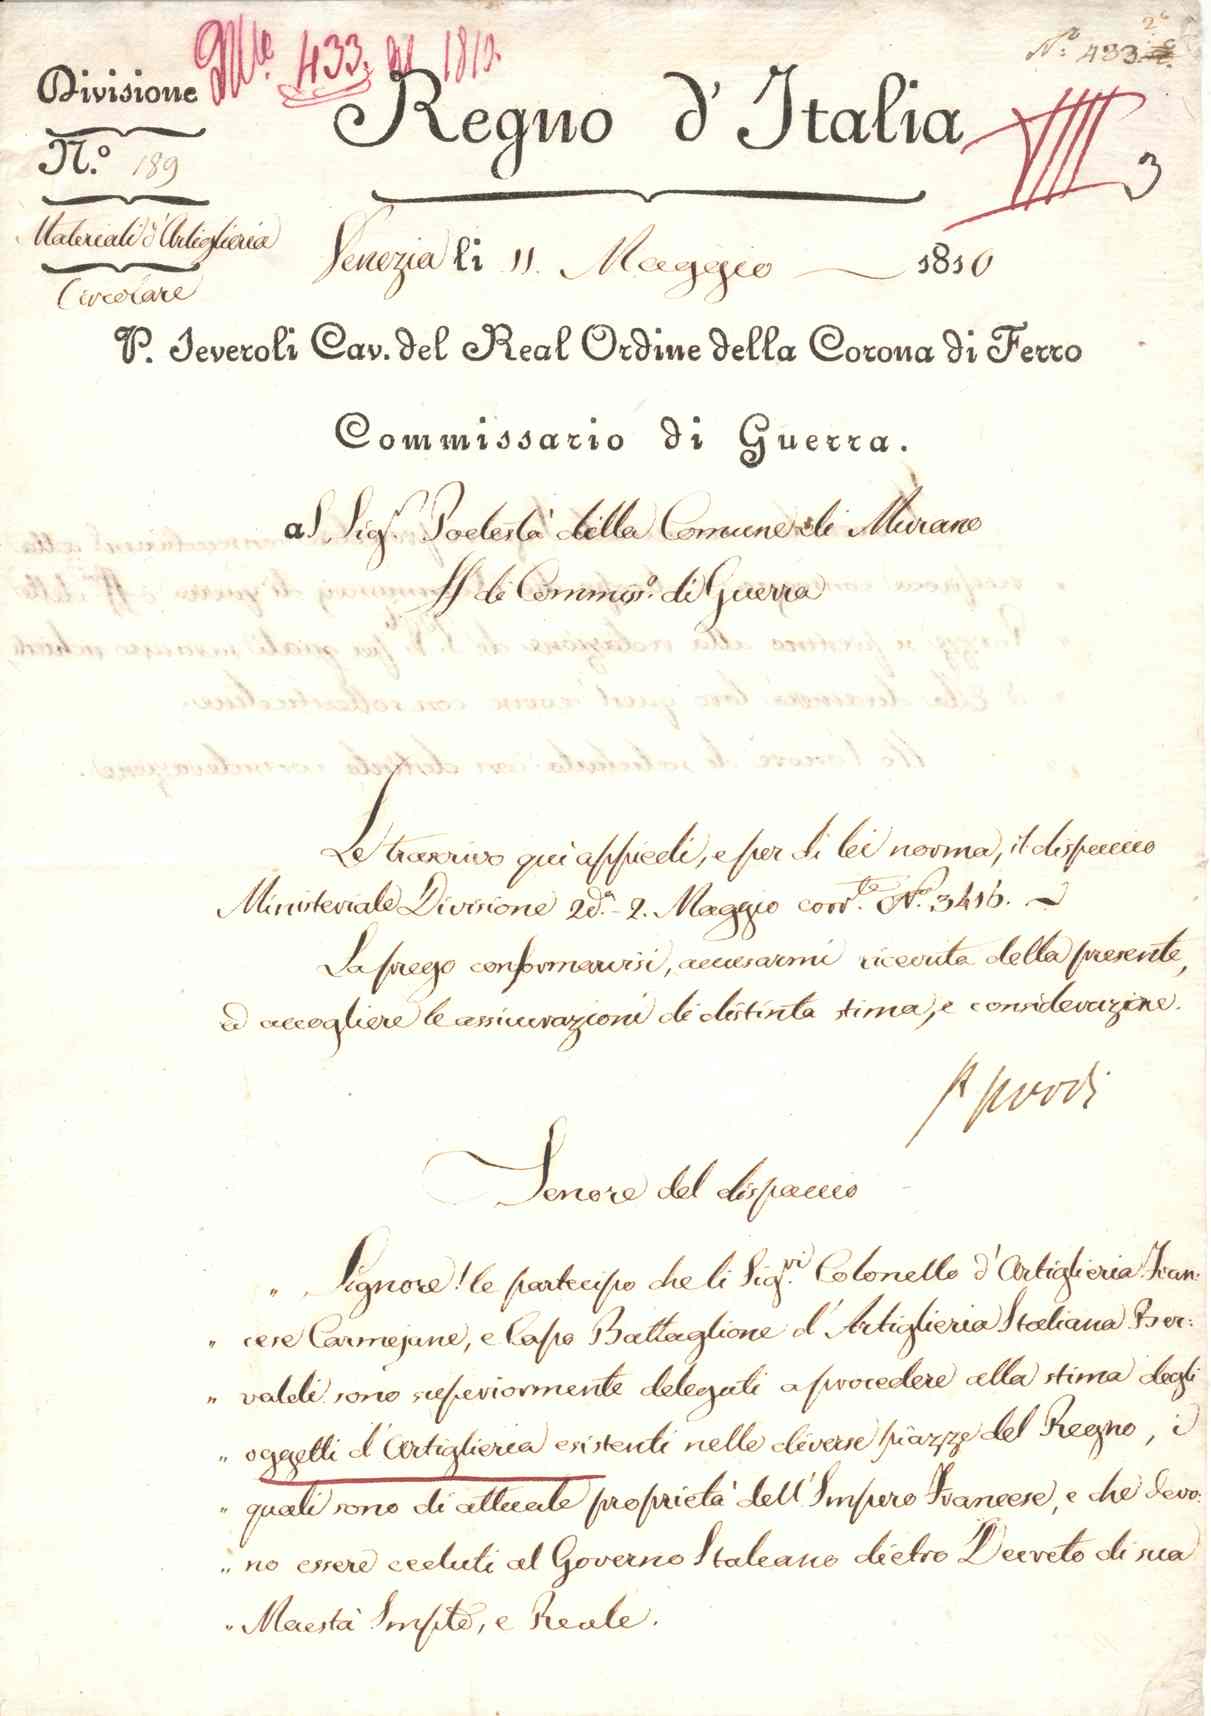 433. 1810.
Nº: 433. 2ª
Divisione
Regno d'Italia
VIIII 3
N.º 189
Materiali d'Artiglieria
Venezia li 11. Maggio 1810
Circolare
P. Severoli Cav. del Real Ordine della Corona di Ferro
Commissario di Guerra.
al Sigr. Podestà della Comune di Murano
ff di Commissº. di Guerra
Le trascrivo quì appiedi, e per di lei norma, il dispaccio
Ministeriale Divisione 2dª - 2. Maggio corrte. Nº. 3416.
La prego conformarvisi, accusarmi ricevuta della presente,
ed accogliere le assicurazioni di distinta stima, e considerazione.
Tenore del dispaccio
" Signore! le partecipo che li Sigri. Colonello d'Artiglieria Fran:
" cese Carmejane, e Capo Battaglione d'Artiglieria Italiana Ber:
" valdi sono superiormente delegati a procedere alla stima degli
" oggetti d'Artiglieria esistenti nelle diverse piazze del Regno, i
" quali sono di attuale proprietà dell'Impero Francese, e che devo:
" no essere ceduti al Governo Italiano dietro Decreto di sua
" Maestà Imple, e Reale.